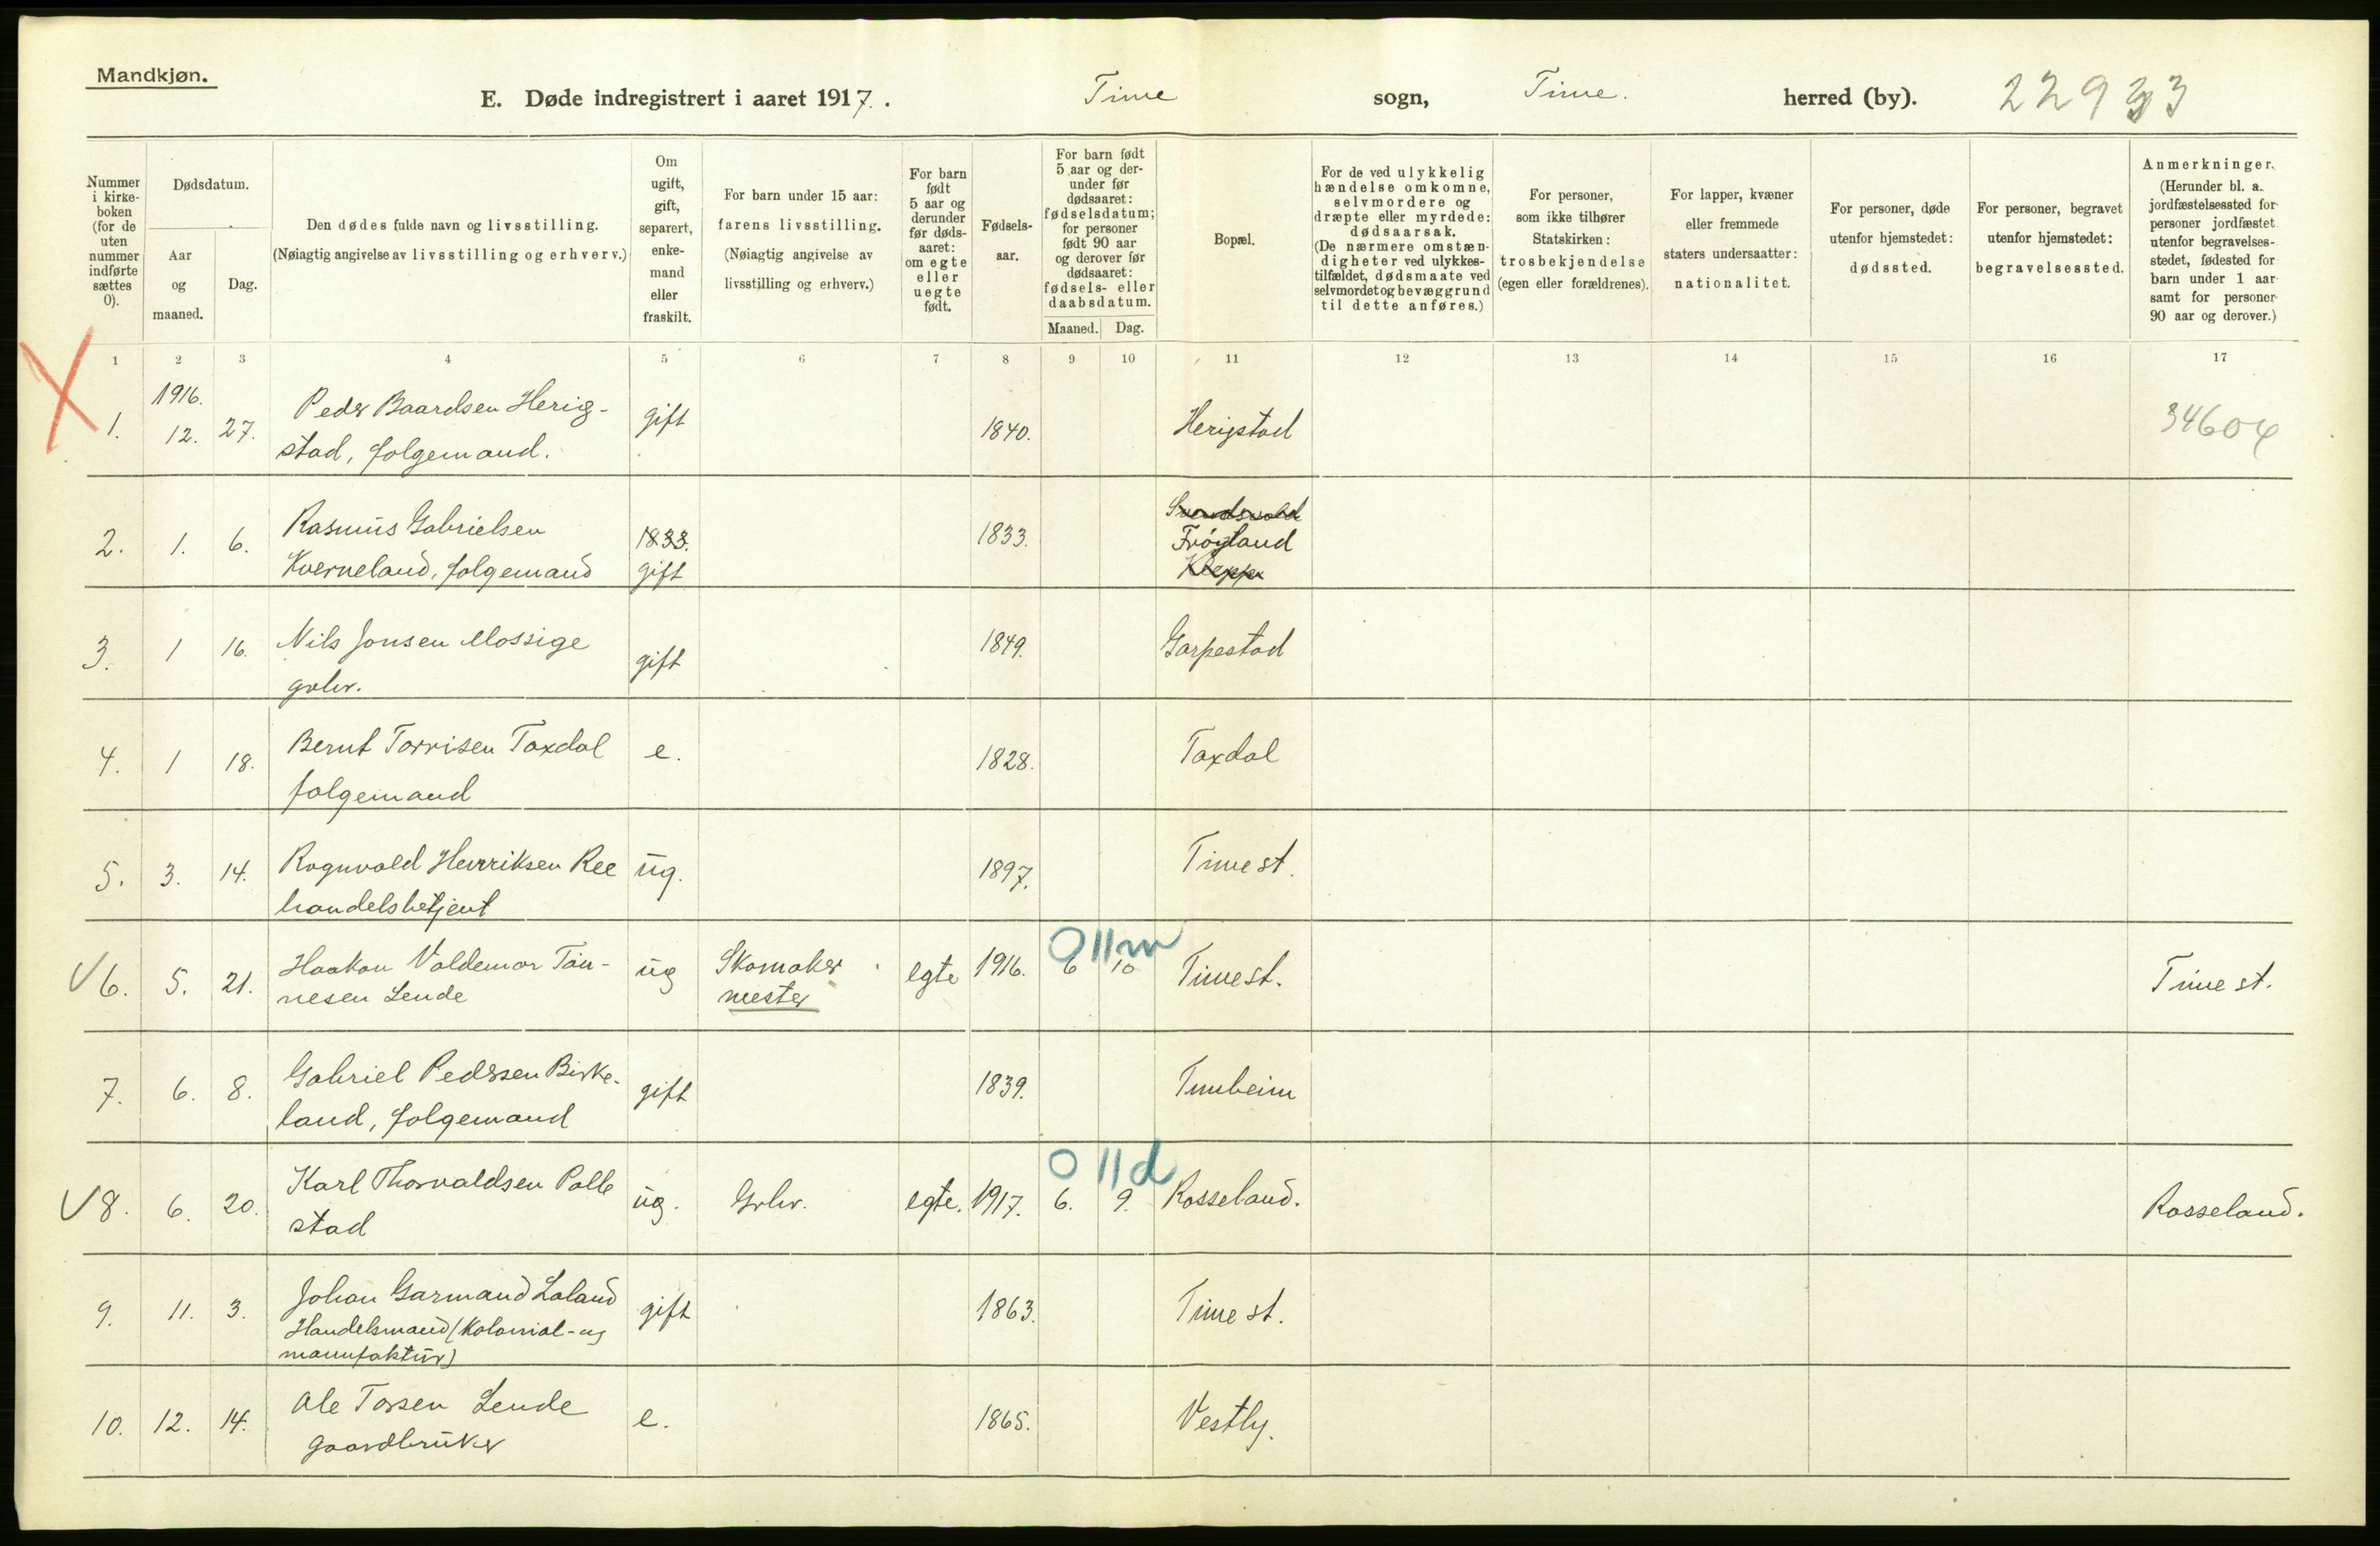 Mandkjøn.
E. Døde indregistrert i aaret 1917. Time sogn, Time. herred (by). 22933
Nummer i kirke- boken (for de uten nummer indførte sættes 0).
Dødsdatum.
Aar og maaned.
Dag.
Den dødes fulde navn og livsstilling.
(Nøiagtig angivelse av livsstilling og erhverv.)
Om ugift, gift, separert, enke- mand eller fraskilt.
For barn under 15 aar: farens livsstilling. (Nøiagtig angivelse av livsstilling og erhverv.)
For barn født 5 aar og derunder før døds- aaret: om egte eller uegte født.
Fødsels- aar.
For barn født 5 aar og der- under før dødsaaret: fødselsdatum; for personer født 90 aar og derover før dødsaaret: fødsels- eller daabsdatum.
Maaned. Dag.
Bopæl.
For de ved ulykkelig hændelse omkomne, selvmordere og dræpte eller myrdede: dødsaarsak. (De nærmere omstæn- digheter ved ulykkes- tilfældet, dødsmaate ved selvmordet og bevæggrund til dette anføres.)
For personer, som ikke tilhører Statskirken: trosbekjendelse (egen eller forældrenes).
For lapper, kvæner eller fremmede staters undersaatter: nationalitet.
For personer, døde utenfor hjemstedet: dødssted.
For personer, begravet utenfor hjemstedet: begravelsessted.
Anmerkninger. (Herunder bl. a. jordfæstelsessted for personer jordfæstet utenfor begravelses- stedet, fødested for barn under 1 aar samt for personer 90 aar og derover.)
1 2 3 4 5 6 7 8 9 10 11 12 13 14 15 16 17
1916.
1. 12. 27. Peder Baardsen Herig- gift 1840. Herigstad 34604
stad, folgemand.
2. 1. 6. Rasmus Gabrielsen 1833. 1833. Frøyland
Kverneland, folgemand gift Klepp
3. 1 16. Nils Jonsen Mossige gift 1849. Garpestad
grbr.
4. 1 18. Bernt Torrisen Taxdal e. 1828. Taxdal
folgemand
5. 3. 14. Ragnvald Henriksen Ree ug. 1897. Time st.
handelsbetjent
0 11 m
V 6. 5. 21. Haakon Valdemar Tøn- ug Skomaker egte 1916. 6 10 Time st. Time st.
nesen Lende mester
7. 6. 8. Gabriel Pedersen Birke- gift 1839. Tunheim
land, folgemand
0 11 d
V 8. 6. 20. Karl Thorvaldsen Polle ug. Grbr. egte. 1917. 6. 9. Rosseland. Rosseland.
stad
9. 11. 3. Johan Garmand Laland gift 1863. Time st.
Handelsmand (Kolonial- og
manufaktur)
10. 12. 14. Ole Torsen Lende e. 1865. Vestly.
gaardbruker